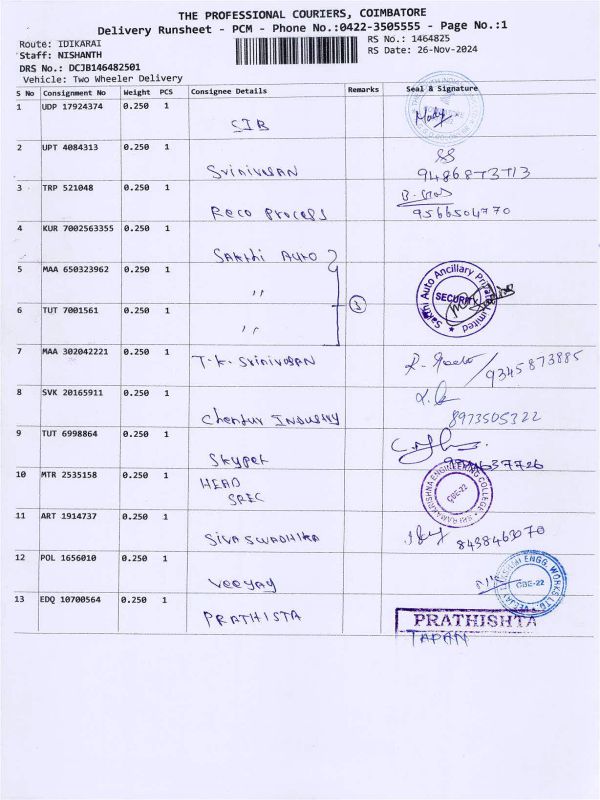 THE PROFESSIONAL COURIERS, COIMBATORE
Delivery Runsheet - PCM - Phone No.:0422-3505555 - Page No.:1
Route: IDIKARAI
RS No.: 1464825
Staff: NISHANTH
RS Date: 26-Nov-2024
DRS No.: DCJB146482501
Vehicle: Two Wheeler Delivery
S No Consignment No Weight PCS Consignee Details Remarks Seal & Signature
1 UDP 17924374 0.250 1
SIB
2 UPT 4084313 0.250 1
Srinivasan
9486873713
3 TRP 521048 0.250 1
Reco Process
9566504770
4 KUR 7002563355 0.250 1
Sakthi Auto
5 MAA 650323962 0.250 1
"
3
Sakthi Auto Ancillary Private Limited
SECURITY
6 TUT 7001561 0.250 1
"
7 MAA 302042221 0.250 1
T.K. Srinivasan
9345873885
8 SVK 20165911 0.250 1
Chendur Industry
8973505322
9 TUT 6998864 0.250 1
Skypet
10 MTR 2535158 0.250 1
HEAD
SREC
SRI RAMAKRISHNA ENGINEERING COLLEGE
CBE-22
11 ART 1914737 0.250 1
Siva Swadhika
12 POL 1656010 0.250 1
Veejay
CBE-22
13 EDQ 10700564 0.250 1
PRATHISTA
PRATHISHTA
TAPAN